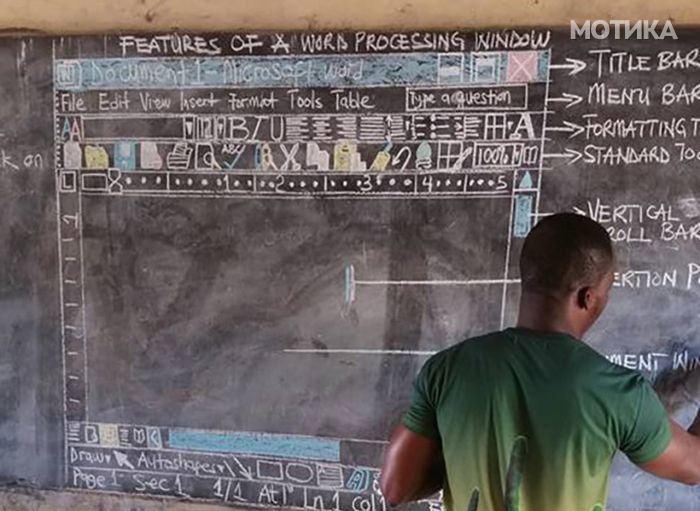 МОТИКА
FEATURES OF A WORD PROCESSING WINDOW
W Document 1 - Microsoft Word
TITLE BAR
File Edit View Insert Format Tools Table
Type a question
MENU BAR
AA
12
B I U
A
FORMATTING T
ABC
100%
STANDARD TOO
k on
L 8 1 2 3 4 5
1
VERTICAL
ROLL BAR
ERTION P
MENT WIN
Draw Autoshapes
Page 1 Sec 1 1/1 At 1" Ln 1 Col